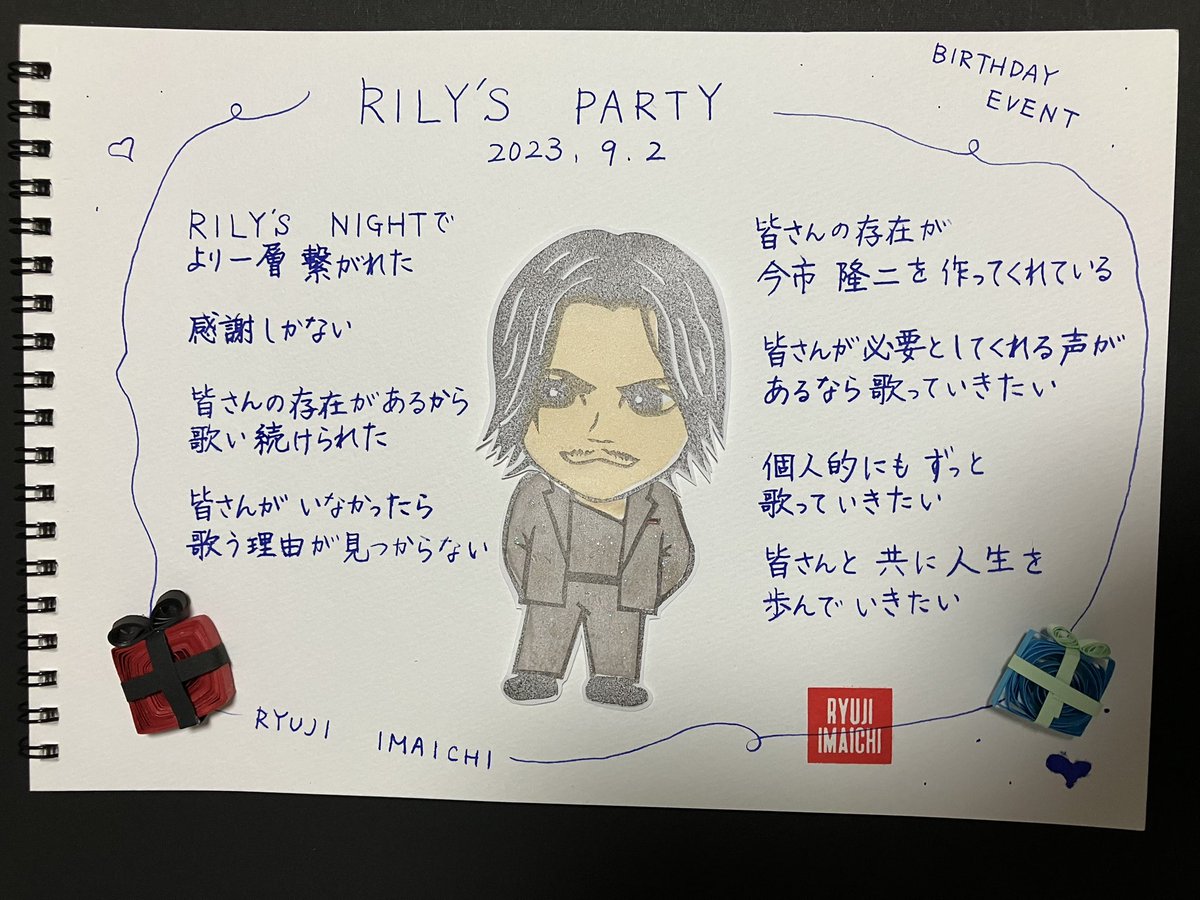 BIRTHDAY
EVENT
RILY'S PARTY
2023.9.2
RILY'S NIGHTで
より一層 繋がれた
感謝しかない
皆さんの存在があるから
歌い続けられた
皆さんが いなかったら
歌う理由が見つからない
皆さんの存在が
今市 隆二を 作ってくれている
皆さんが必要としてくれる声が
あるなら歌っていきたい
個人的にも ずっと
歌っていきたい
皆さんと 共に 人生を
歩んで いきたい
RYUJI IMAICHI
RYUJI
IMAICHI